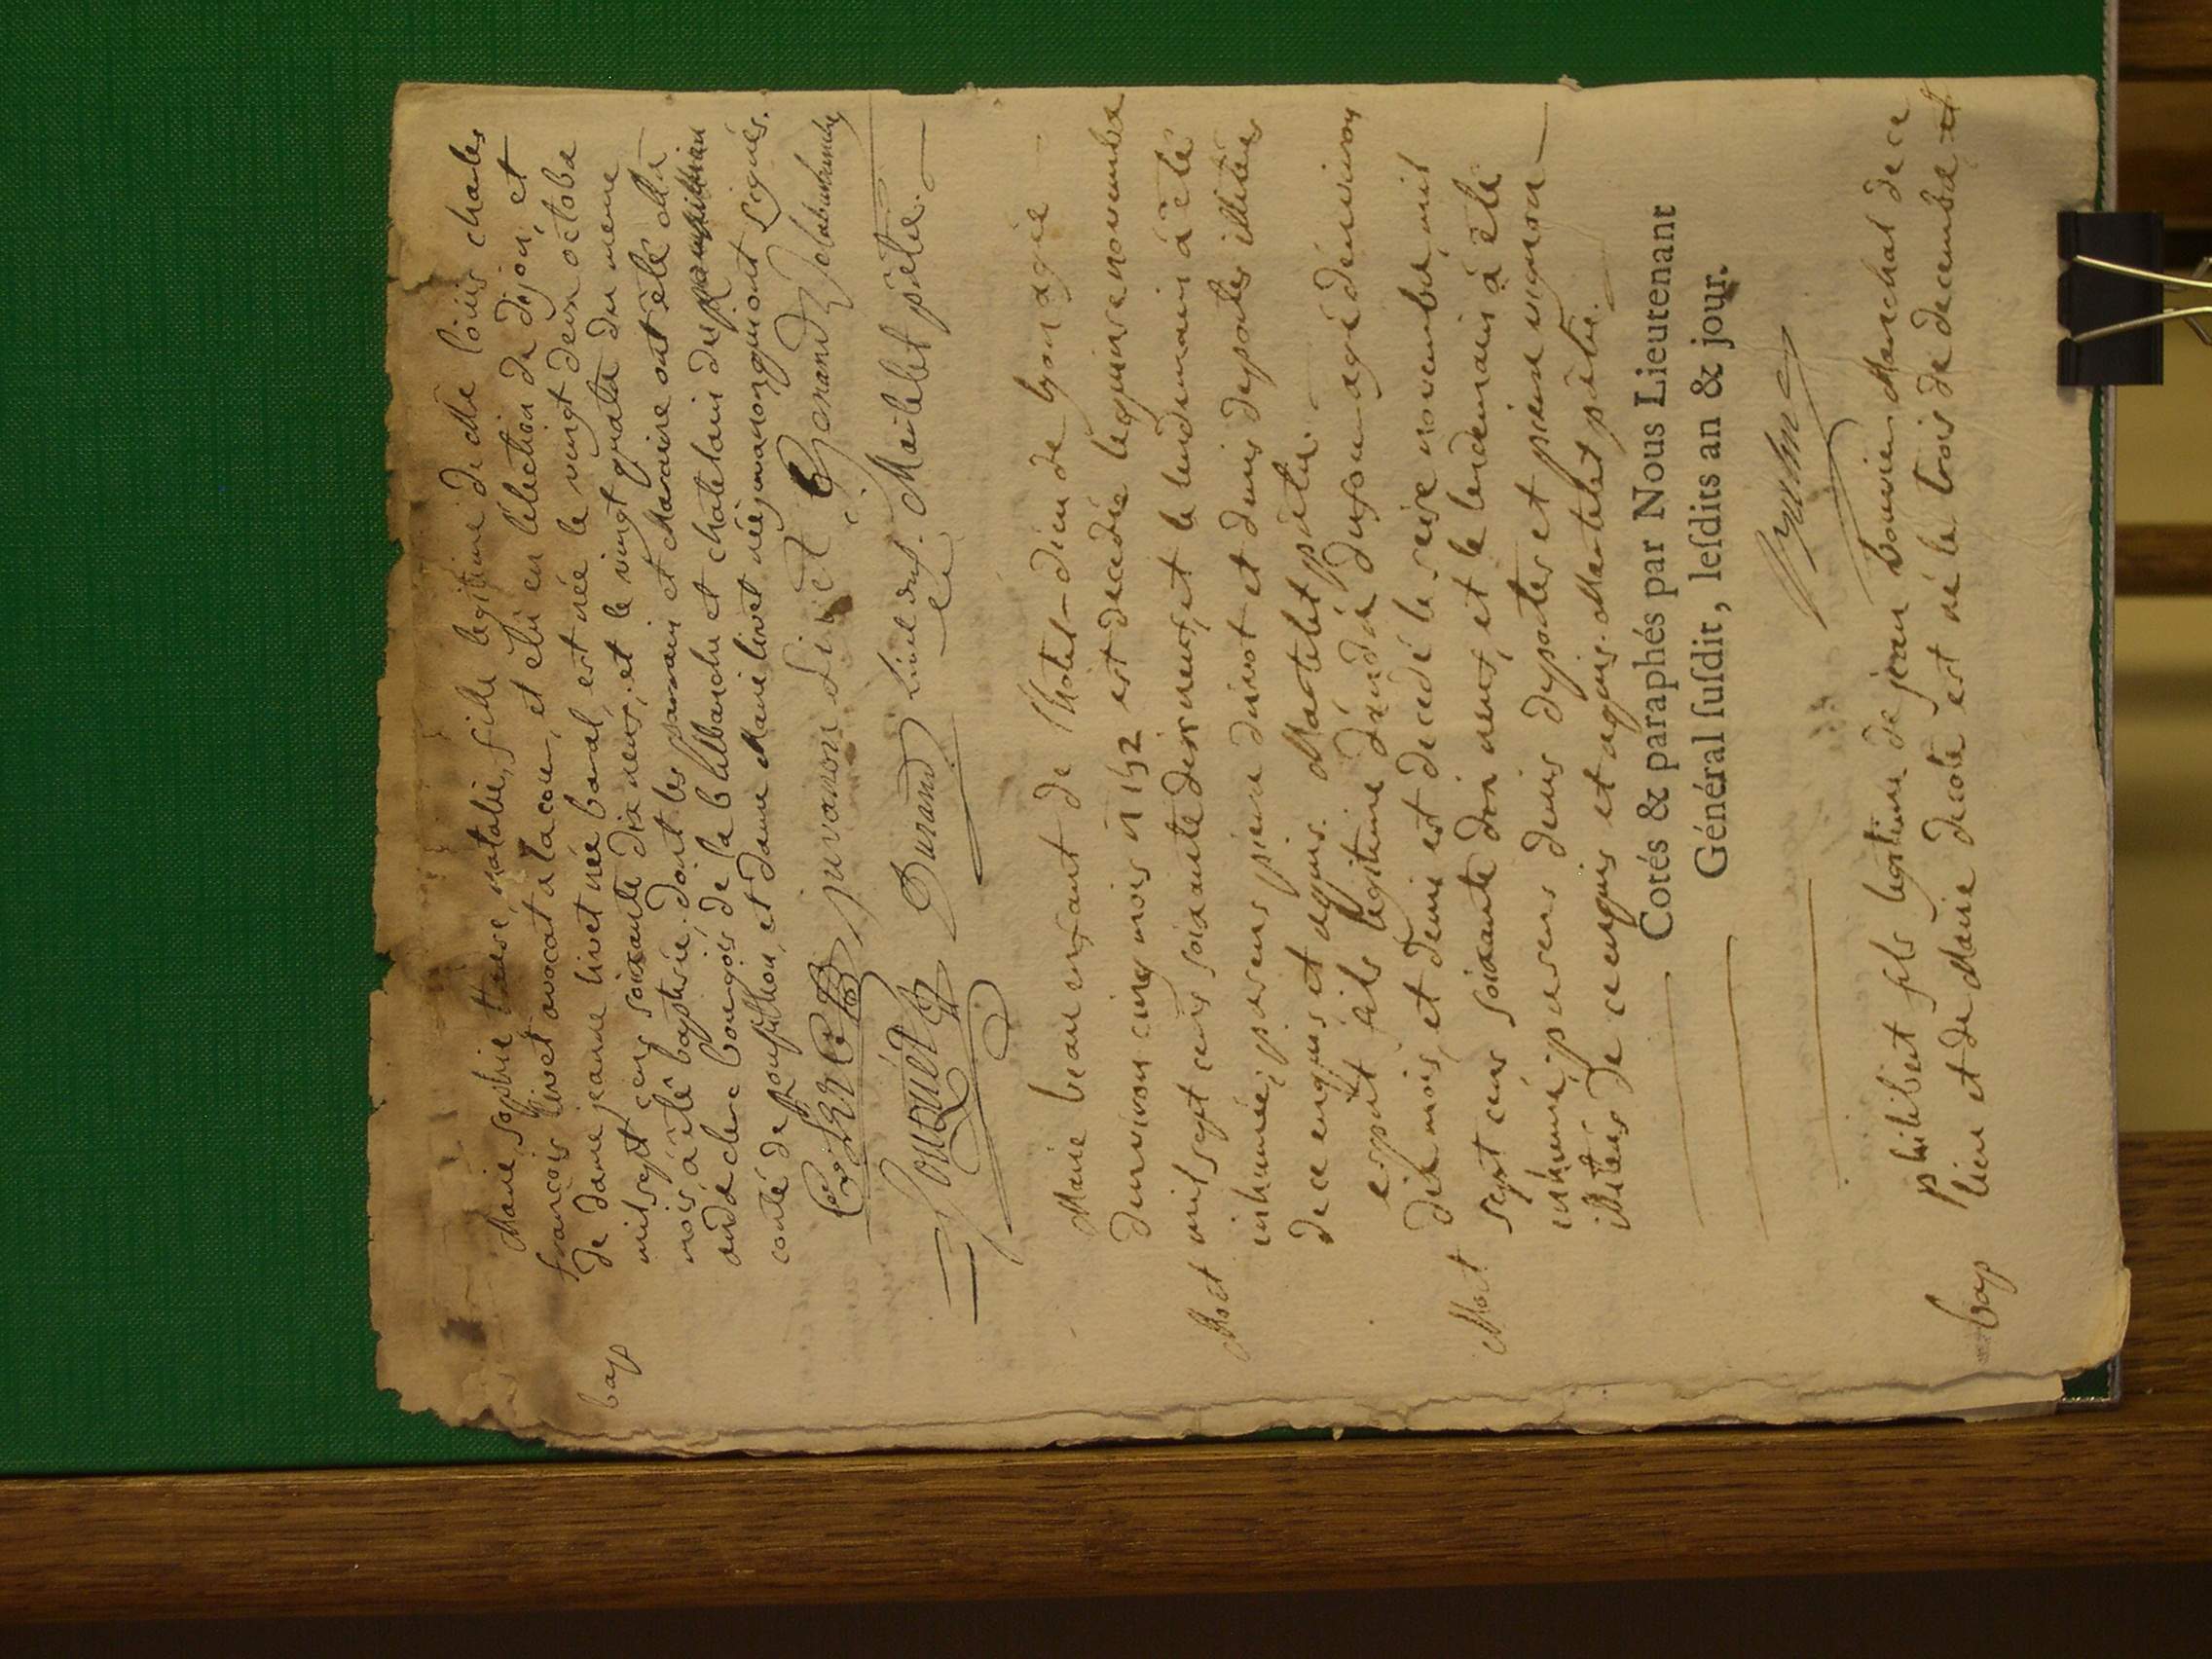 Marie sophie terese natalie, fille legitime de Me louis charles
françois livet avocat a la cour, et elu en l'élection de dijon, et
de dame jeanne livet née baral, est née le vingt deux octobre
mil sept cens soixante dix neuf, et le vingt quatre du meme
bap mois, a été baptisée, dont les parrain et Maraine ont été Me
bourgois de la et chatelain de
comté de pouffillion, et dame Marie livet née juvanon qui ont signés.
juvanon Livet Durand
Durand Livet Martelet pêtre.
Marie beau enfant de l'hotel-dieu de lyon agée
d'environ cinq mois n 192 est decedée le quinze novembre
Mort mil sept cens soixante dix neuf, et le lendemain a été
inhumée; presens pierre durost et denis desportes illiterés
de ce enquis et requis. Martelet pêtre.
esprit fils légitime d'andré agé d'environ
dix mois, et demi est decedé le seize novembre mil
Mort sept cens soixante dix neuf, et le lendemain a été
inhumé; presens denis desportes et pierre vigneron
illiterés de ce enquis et requis. Martelet pêtre.
Cotés & paraphés par Nous Lieutenant
Général ſuſdit, leſdits an & jour.
philibert fils legitime de jean bouvier Marechal de ce
bap lieu et de Marie est né le trois de decembre et